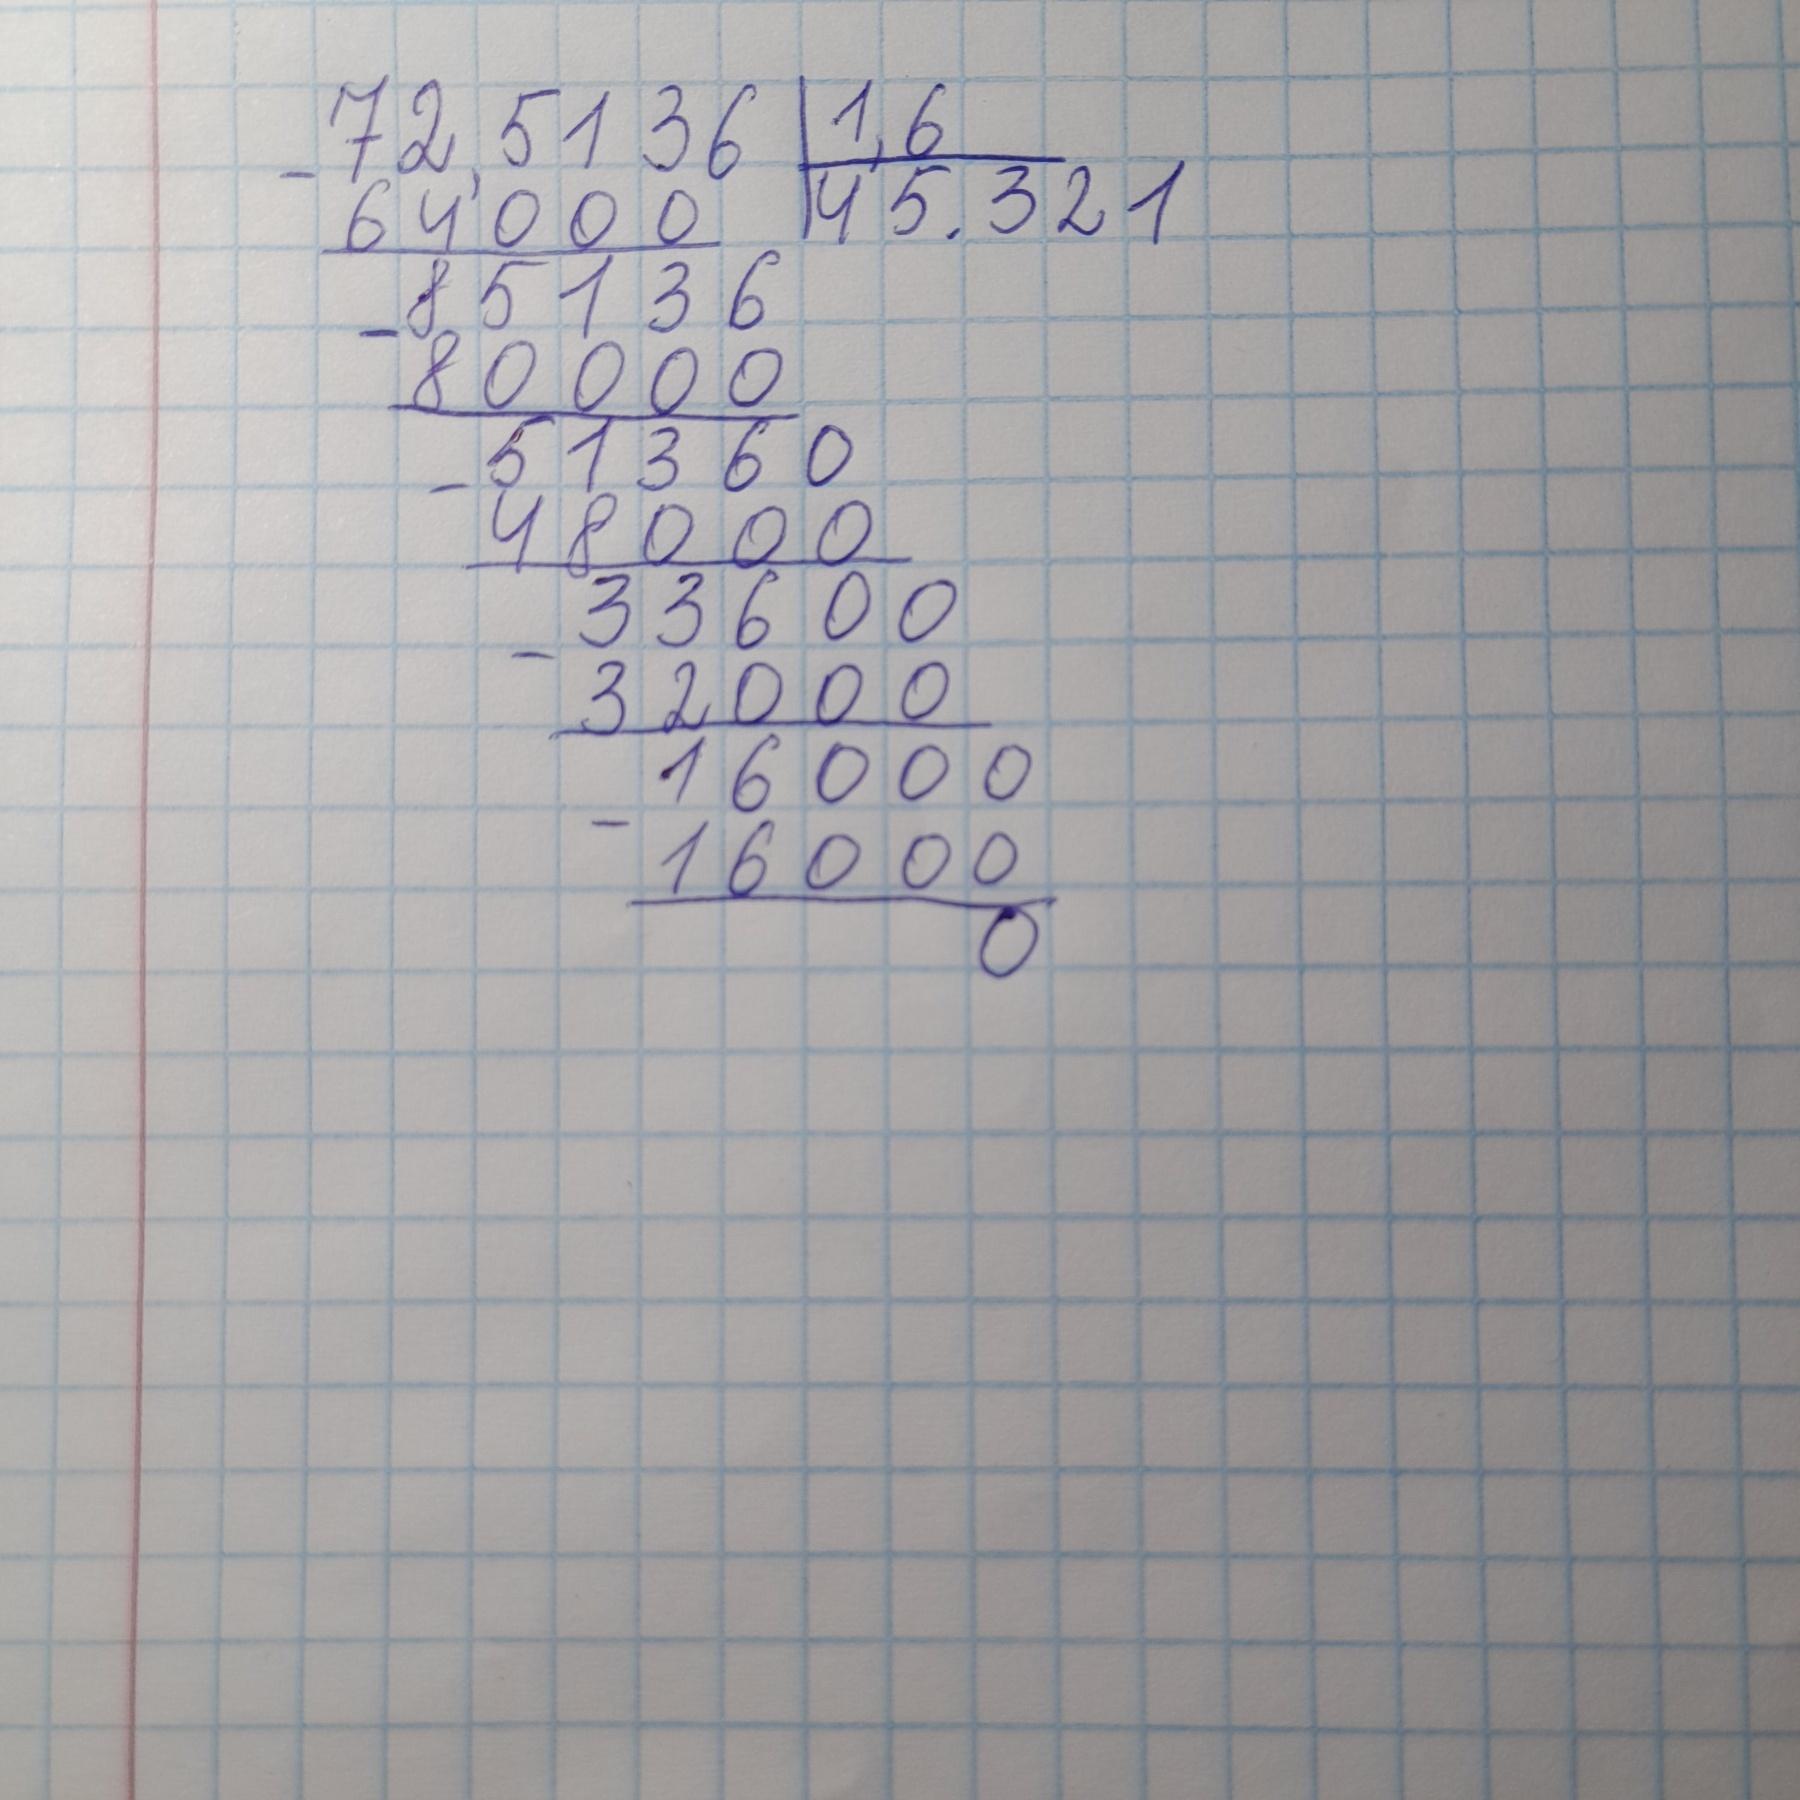 72,5136 | 1,6
- 64000 | 45.321
85136
- 80000
51360
- 48000
33600
- 32000
16000
- 16000
0